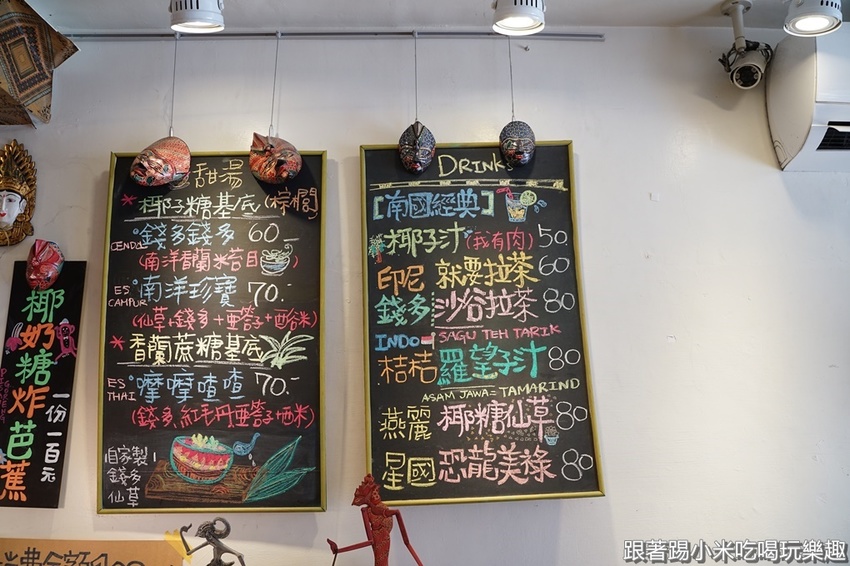 甜湯
*椰子糖基底(棕櫚)
CENDOL 錢多錢多 60
(南洋香蘭米苔目)
ES CAMPUR 南洋珍寶 70.-
(仙草+錢多+亞荅子+西谷米)
*香蘭蔗糖基底
ES THAI 摩摩喳喳 70.-
(錢多,紅毛丹,亞荅子+西米)
自家製!
錢多
仙草
DRINKS
[南國經典]
椰子汁(我有肉) 50
印尼 就要拉茶 60
錢多 沙谷拉茶 80
INDO SAGU TEH TARIK
桔桔 羅望子汁 80
ASAM JAWA = TAMARIND
燕麗 椰糖仙草 80
星國 恐龍美祿 80
椰奶糖炸芭蕉
一份一百元
跟著踢小米吃喝玩樂趣